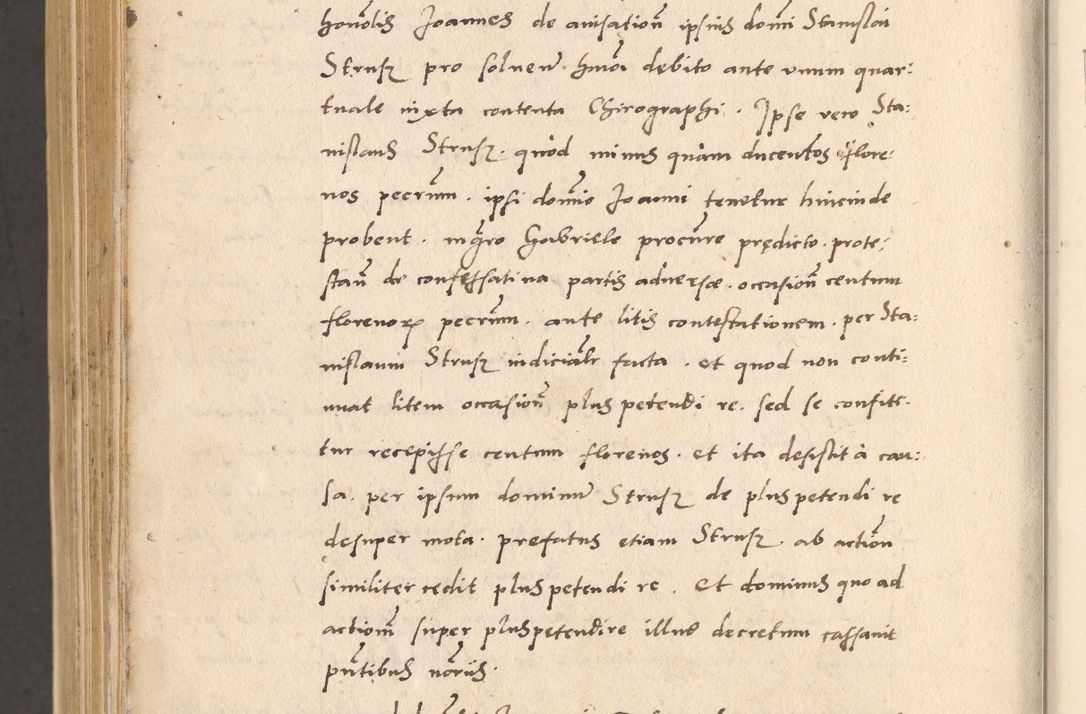 honolis Joannes de avisation ipsius domi Stanislai
Strusz pro solven hmoi debito ante unum quar:
tuale iuxta contenta Chirographi. Ipse vero Sta:
nislaus Strusz. quod minus quam ducentos flore:
nos pecrum. ipsi domio Joanni tenetur hincinde
probent. mgro Gabriele procure predicto. prote:
stan de confessatina partis adverse. occasion centum
florenor pecrum. ante litis contestationem. per Sta:
nislaum Strusz iudicialr facta. et quod non conti:
nuat litem occasion plus petendi re. sed se confite.
tur recepisse centum florenos. et ita desistit à cau:
sa. per ipsum dominu Strusz de plus petendi re
desuper mota. prefatus etiam Strusz. ab action
similiter cedit plus petendi re. Et dominus quo ad
actiom super pluspetendire illud decretum cassavit
pntibus noriis.